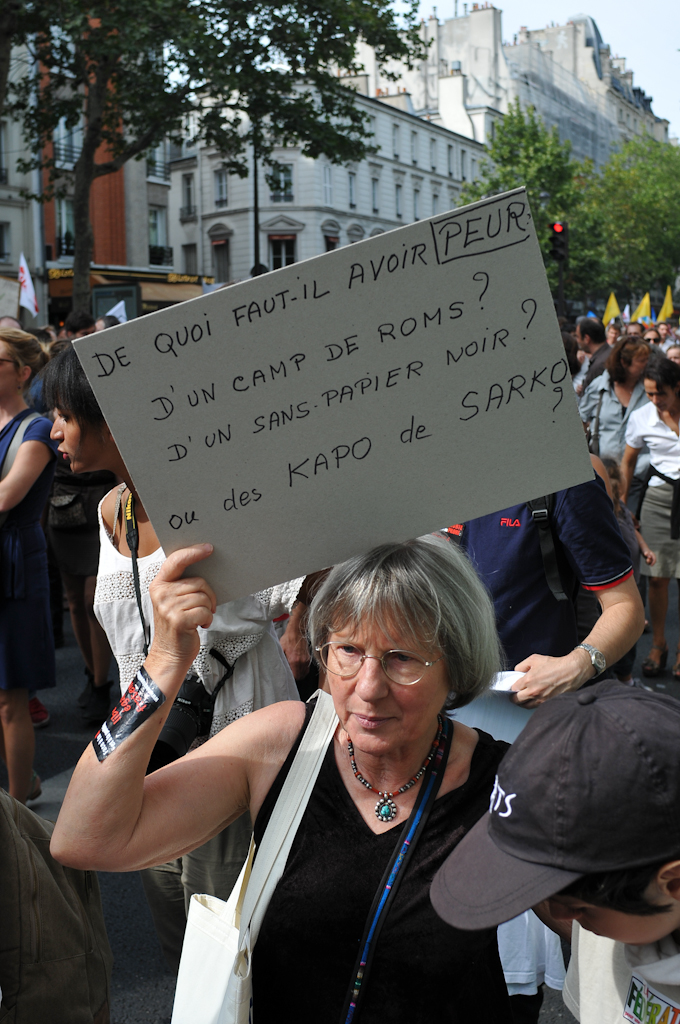 DE QUOI FAUT-IL AVOIR PEUR:
D'UN CAMP DE ROMS?
D'UN SANS-PAPIER NOIR?
ou des KAPO de SARKO
?
FILA